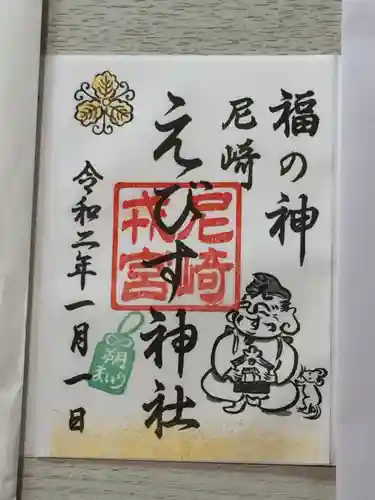 福の神
尼崎
えびす神社
尼崎
戎宮
令和二年一月一日
朔
まいり